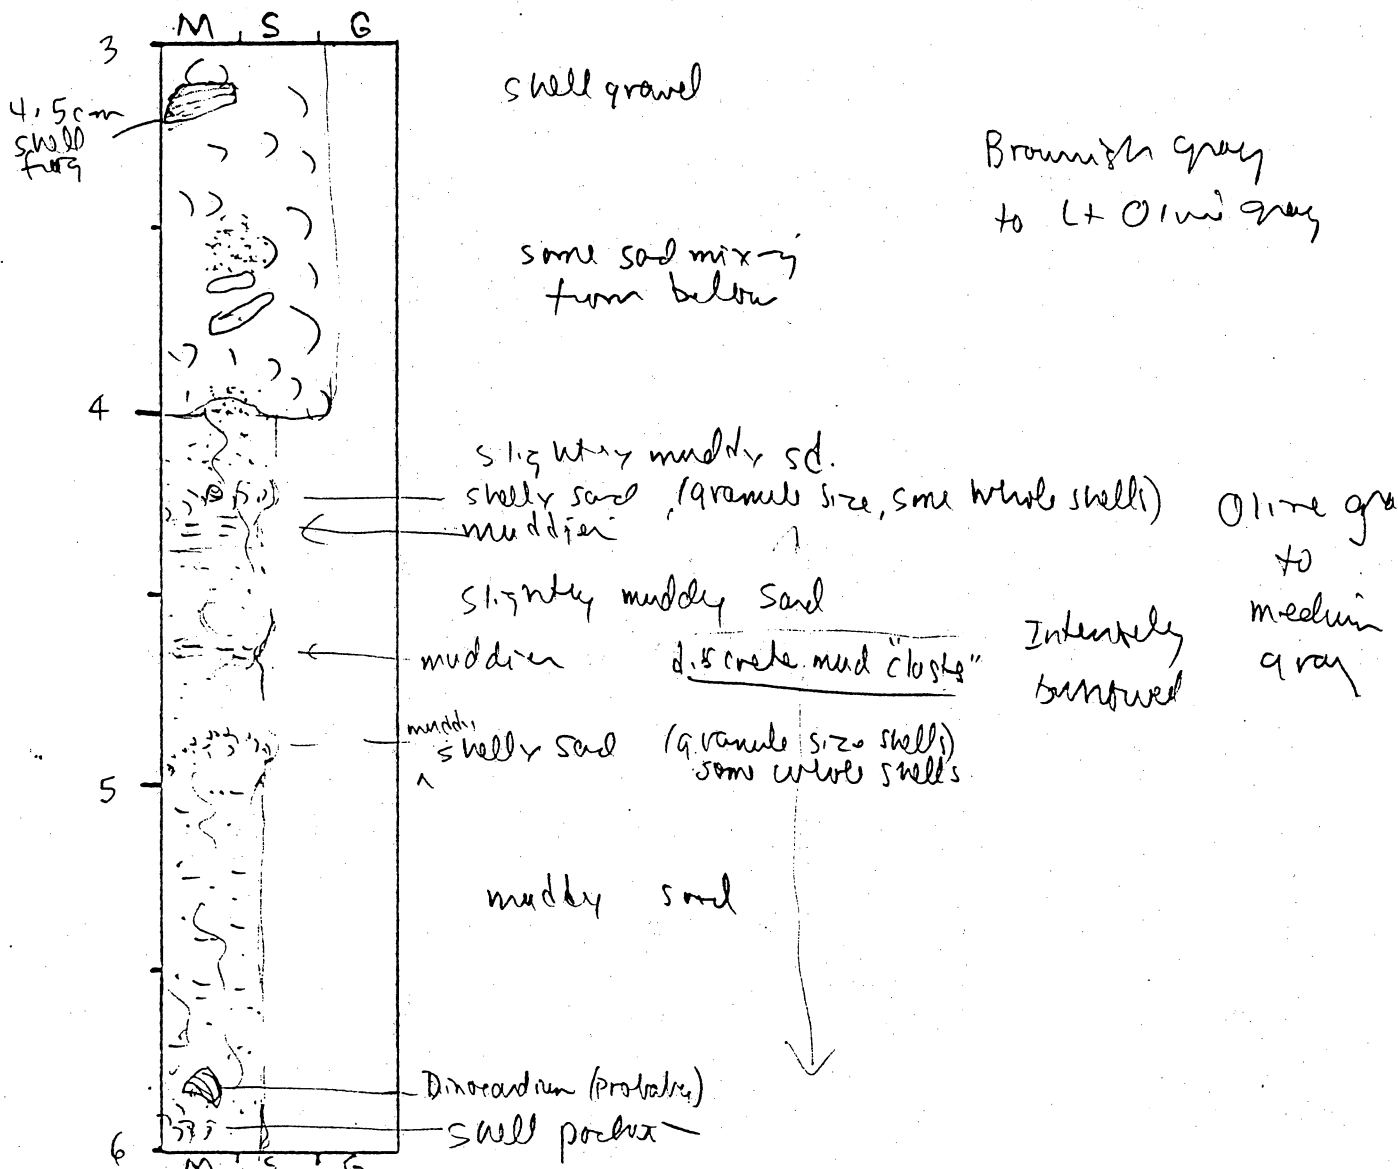 M S G
3
shell gravel
4.5cm
shell
frag
Brownish gray
to Lt Olive gray
some sad mixing
from below
4
slightly muddy sd.
shelly sand (granule size, some whole shells)
muddier
Olive gra
to
medium
gray
slightly muddy sand
Intensely
burrowed
muddier
discrete mud "clasts"
muddy
shelly sad (granule size shells)
some whole shells
5
muddy sand
Dinocardium (probably)
shell pocket
6
M S G